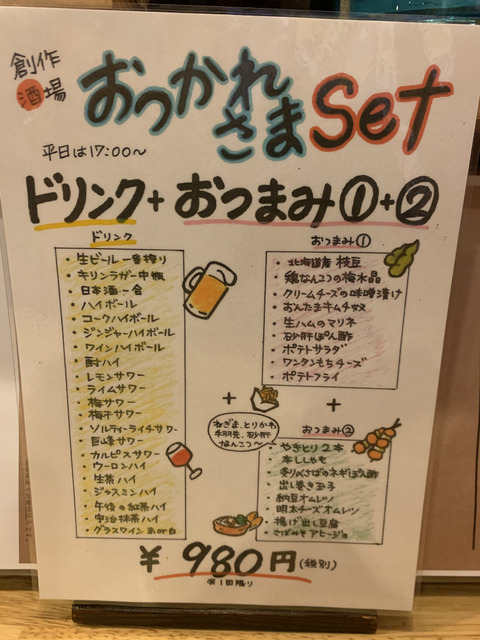 創作
酒場
おつかれ
さま Set
平日は17:00〜
ドリンク + おつまみ① + ②
ドリンク
・生ビール一番搾り
・キリンラガー中瓶
・日本酒一合
・ハイボール
・コークハイボール
・ジンジャーハイボール
・ワインハイボール
・酎ハイ
・レモンサワー
・ライムサワー
・梅サワー
・梅干サワー
・ソルティーライチサワー
・巨峰サワー
・カルピスサワー
・ウーロンハイ
・生茶ハイ
・ジャスミンハイ
・午後の紅茶ハイ
・宇治抹茶ハイ
・グラスワイン 赤or白
おつまみ①
・北海道産 枝豆
・鶏なんこつの梅水晶
・クリームチーズの味噌漬け
・おんたまキムチ奴
・生ハムのマリネ
・砂肝ぽん酢
・ポテトサラダ
・ワンタンもちチーズ
・ポテトフライ
+
+
ねぎま、とりかわ
手羽先、砂肝
なんこつ〜
おつまみ②
・やきとり2本
・本ししゃも
・炙りさばのネギぽん酢
・出し巻き玉子
・納豆オムレツ
・明太チーズオムレツ
・揚げ出し豆腐
・さばみそアヒージョ
¥ 980円(税別)
※1回限り